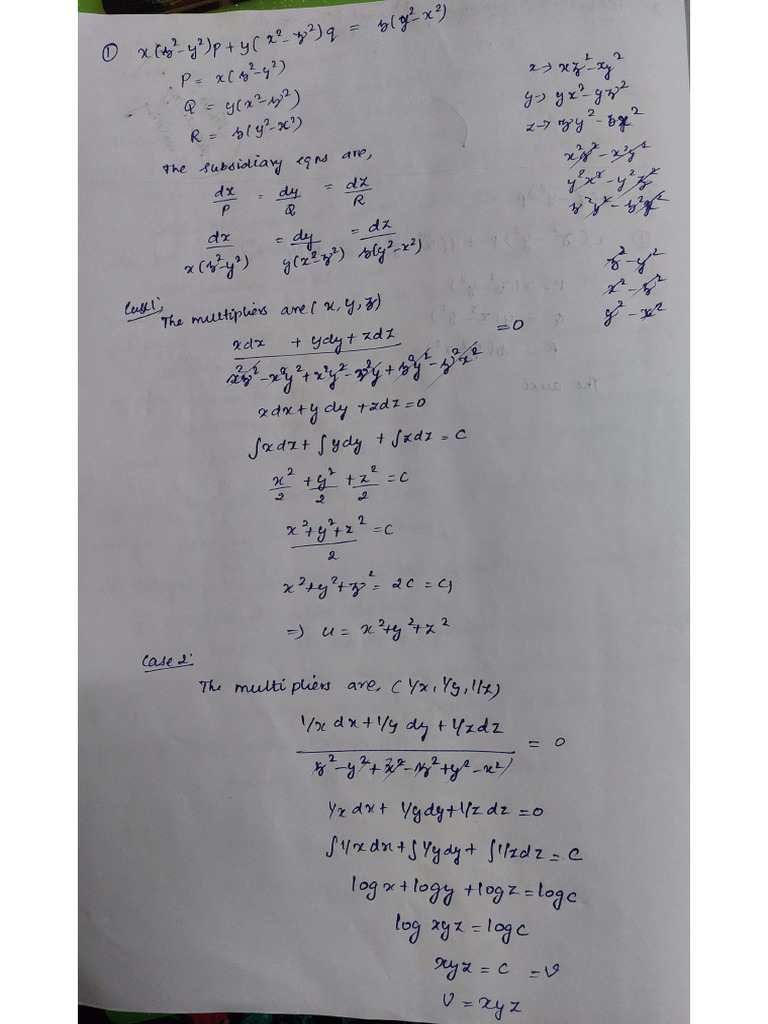 ① x(z²-y²)p+y(x²-z²)q = z(y²-x²)
P = x(z²-y²)
Q = y(x²-z²)
R = z(y²-x²)
x→ xz²-xy²
y→ yx²-yz²
z→ zy²-zx²
x²z²-x²y²
y²x²-y²z²
z²y²-z²x²
z²-y²
x²-z²
y²-x²
The subsidiary eqns are,
dx/P = dy/Q = dz/R
dx/x(z²-y²) = dy/y(x²-z²) = dz/z(y²-x²)
Case 1:
The multipliers are (x, y, z)
xdx + ydy + zdz / x²z²-x²y²+x²y²-z²y+z²y²-z²x² = 0
xdx+ydy+zdz=0
∫xdx+∫ydy+∫zdz=C
x²/2+y²/2+z²/2=C
x²+y²+z²/2=C
x²+y²+z²=2C=C₁
=) u= x²+y²+z²
Case 2:
The multipliers are, (1/x, 1/y, 1/z)
1/x dx+1/y dy+1/z dz / z²-y²+x²-z²+y²-x² = 0
1/x dx+ 1/y dy+1/z dz =0
∫1/x dx+∫1/y dy+ ∫1/z dz = C
log x+log y +log z = log c
log xyz = log c
xyz = c = v
v = xyz